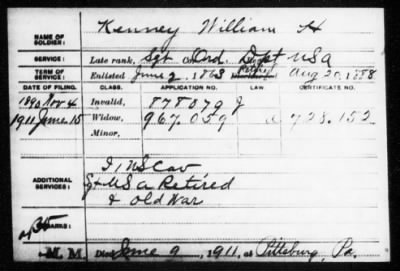 NAME OF SOLDIER: Kenney William H
SERVICE: Late rank, Sgt Co. Ord. Dept USA
TERM OF SERVICE: Enlisted June 2, 1863 Retired Aug 20, 1888
DATE OF FILING. CLASS. APPLICATION NO. LAW. CERTIFICATE NO.
1890 Nov 4 Invalid, 878079 J
1911 June 15 Widow, 967.059 a 728.152
Minor,
ADDITIONAL SERVICES: I, 1 US Cav
Sgt USA Retired
& Old War
REMARKS:
M. M. Died June 9, 1911, at Pittsburg, Pa.